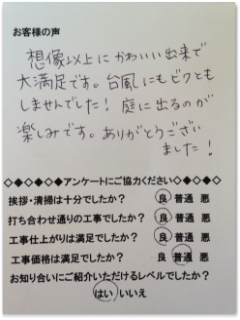 お客様の声
想像以上にかわいい出来で
大満足です。台風にもビクとも
しませんでした！庭に出るのが
楽しみです。ありがとうござい
ました！
◇◆◇◆◇◆アンケートにご協力ください◆◇◆◇
挨拶・清掃は十分でしたか？ 良 普通 悪
打ち合わせ通りの工事でしたか？ 良 普通 悪
工事仕上がりは満足でしたか？ 良 普通 悪
工事価格は満足でしたか？ 良 普通 悪
お知り合いにご紹介いただけるレベルでしたか？
はい いいえ